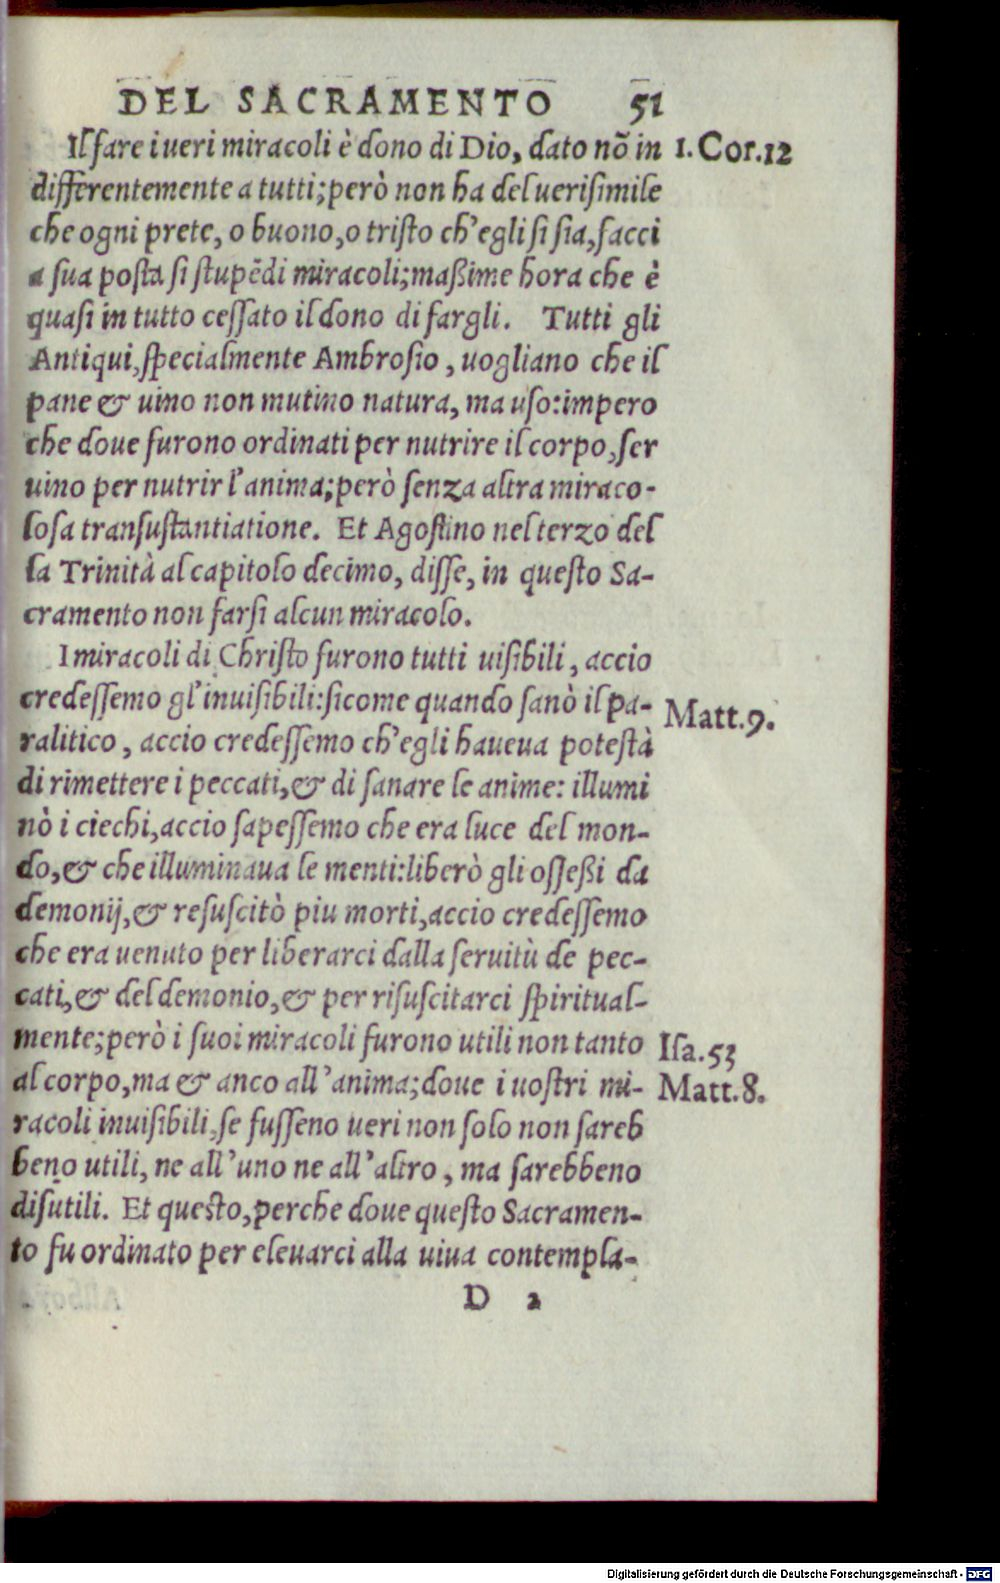 DEL SACRAMENTO 51
Il fare i ueri miracoli è dono di Dio, dato nõ in 1. Cor. 12
differentemente a tutti; però non ha del uerisimile
che ogni prete, o buono, o tristo ch'egli si sia, facci
a sua posta si stupẽdi miracoli; maßime hora che è
quasi in tutto cessato il dono di fargli. Tutti gli
Antiqui, specialmente Ambrosio, uogliano che il
pane & uino non mutino natura, ma uso: impero
che doue furono ordinati per nutrire il corpo, ser
uino per nutrir l'anima; però senza altra miraco-
losa transustantiatione. Et Agostino nel terzo del
la Trinità al capitolo decimo, disse, in questo Sa-
cramento non farsi alcun miracolo.
I miracoli di Christo furono tutti uisibili, accio
credessemo gl'inuisibili: sicome quando sanò il pa- Matt. 9.
ralitico, accio credessemo ch'egli haueua potestà
di rimettere i peccati, & di sanare le anime: illumi
nò i ciechi, accio sapessemo che era luce del mon-
do, & che illuminaua le menti: liberò gli osseßi da
demonij, & resuscitò piu morti, accio credessemo
che era uenuto per liberarci dalla seruitù de pec-
cati, & del demonio, & per risuscitarci spiritual-
mente; però i suoi miracoli furono utili non tanto Isa. 53
al corpo, ma & anco all'anima; doue i uostri mi- Matt. 8.
racoli inuisibili, se fusseno ueri non solo non sareb
beno utili, ne all'uno ne all'altro, ma sarebbeno
disutili. Et questo, perche doue questo Sacramen-
to fu ordinato per eleuarci alla uiua contempla-
D 2
Digitalisierung gefördert durch die Deutsche Forschungsgemeinschaft - DFG